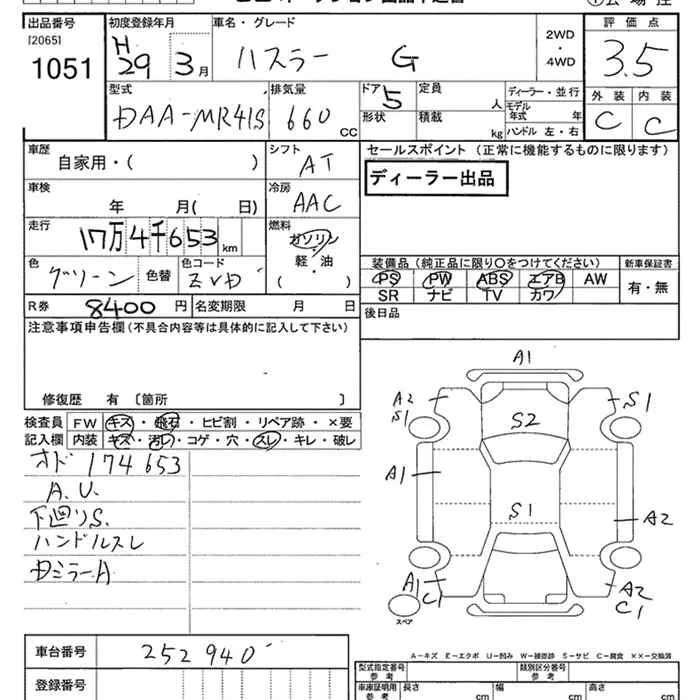 出品番号 初度登録年月 車名・グレード 2WD ・ 4WD 評価点
[2065]
1051 H29 3月 ハスラー G 3.5
型式 排気量 ドア 定員 人 ディーラー・並行 外装 内装
DAA-MR41S 660 CC 5 モデル年式 年 C C
形状 積載 kg ハンドル 左・右
車歴 シフト セールスポイント (正常に機能するものに限ります)
自家用・( ) AT ディーラー出品
車検 冷房
年 月( 日) AAC
走行 燃料
17万4千653km ガソリン・軽・油 ( )
装備品 (純正品に限り〇をつけてください) 新車保証書
色 色替 色コード PS PW ABS エアB AW 有・無
グリーン ZVD SR ナビ TV カワ
R券 8400円 名変期限 月 日 後日品
注意事項申告欄 (不具合内容等は具体的に記入して下さい)
修復歴 有 〔箇所 〕
検査員 FW キズ・飛石・ヒビ割・リペア跡・×要
記入欄 内装 キズ・汚レ・コゲ・穴・スレ・キレ・破レ
オド 174653
A.U.
下廻りS.
ハンドルスレ
A1
A2 S1
S1 S2
A1
S1 A2
A1 A2
C1 C1
スペア
A－キズ E－エクボ U－凹み W－補修跡 S－サビ C－腐食 ××－交換済
車台番号 252940
登録番号
型式指定番号 参考 類別区分番号 参考
車庫証明用 参考 長さ cm 幅 cm 高さ cm